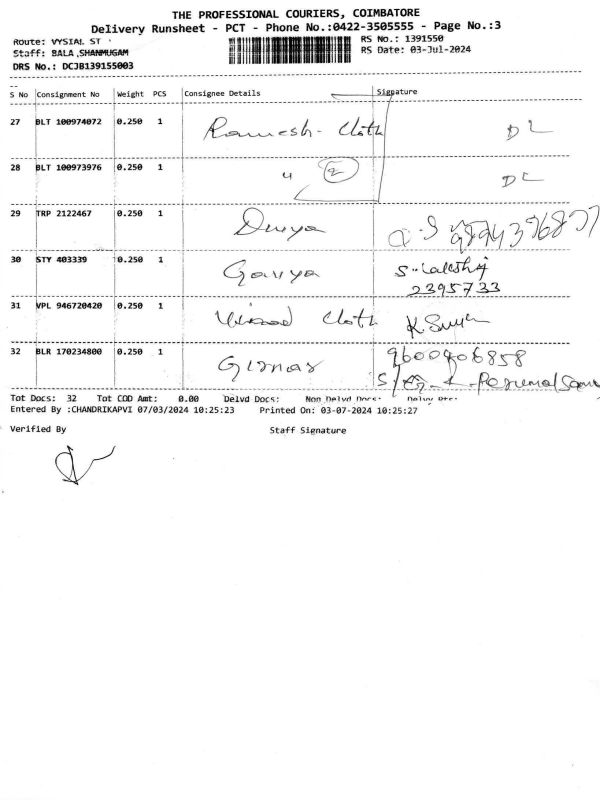 THE PROFESSIONAL COURIERS, COIMBATORE
Delivery Runsheet - PCT - Phone No.:0422-3505555 - Page No.:3
Route: VYSIAL ST
RS No.: 1391550
Staff: BALA ,SHANMUGAM
RS Date: 03-Jul-2024
DRS No.: DCJB139155003
S No Consignment No Weight PCS Consignee Details Signature
27 BLT 100974072 0.250 1 Ramesh- Cloth DL
28 BLT 100973976 0.250 1 " 2 DL
29 TRP 2122467 0.250 1 Divya
30 STY 403339 0.250 1 Gaviya S. Lakshmi
2395733
31 VPL 946720420 0.250 1 Cloth K
32 BLR 170234800 0.250 1 Girnar 9600906858
Tot Docs: 32 Tot COD Amt: 0.00 Delvd Docs: Non Delvd Docs:
Entered By :CHANDRIKAPVI 07/03/2024 10:25:23 Printed On: 03-07-2024 10:25:27
Verified By Staff Signature